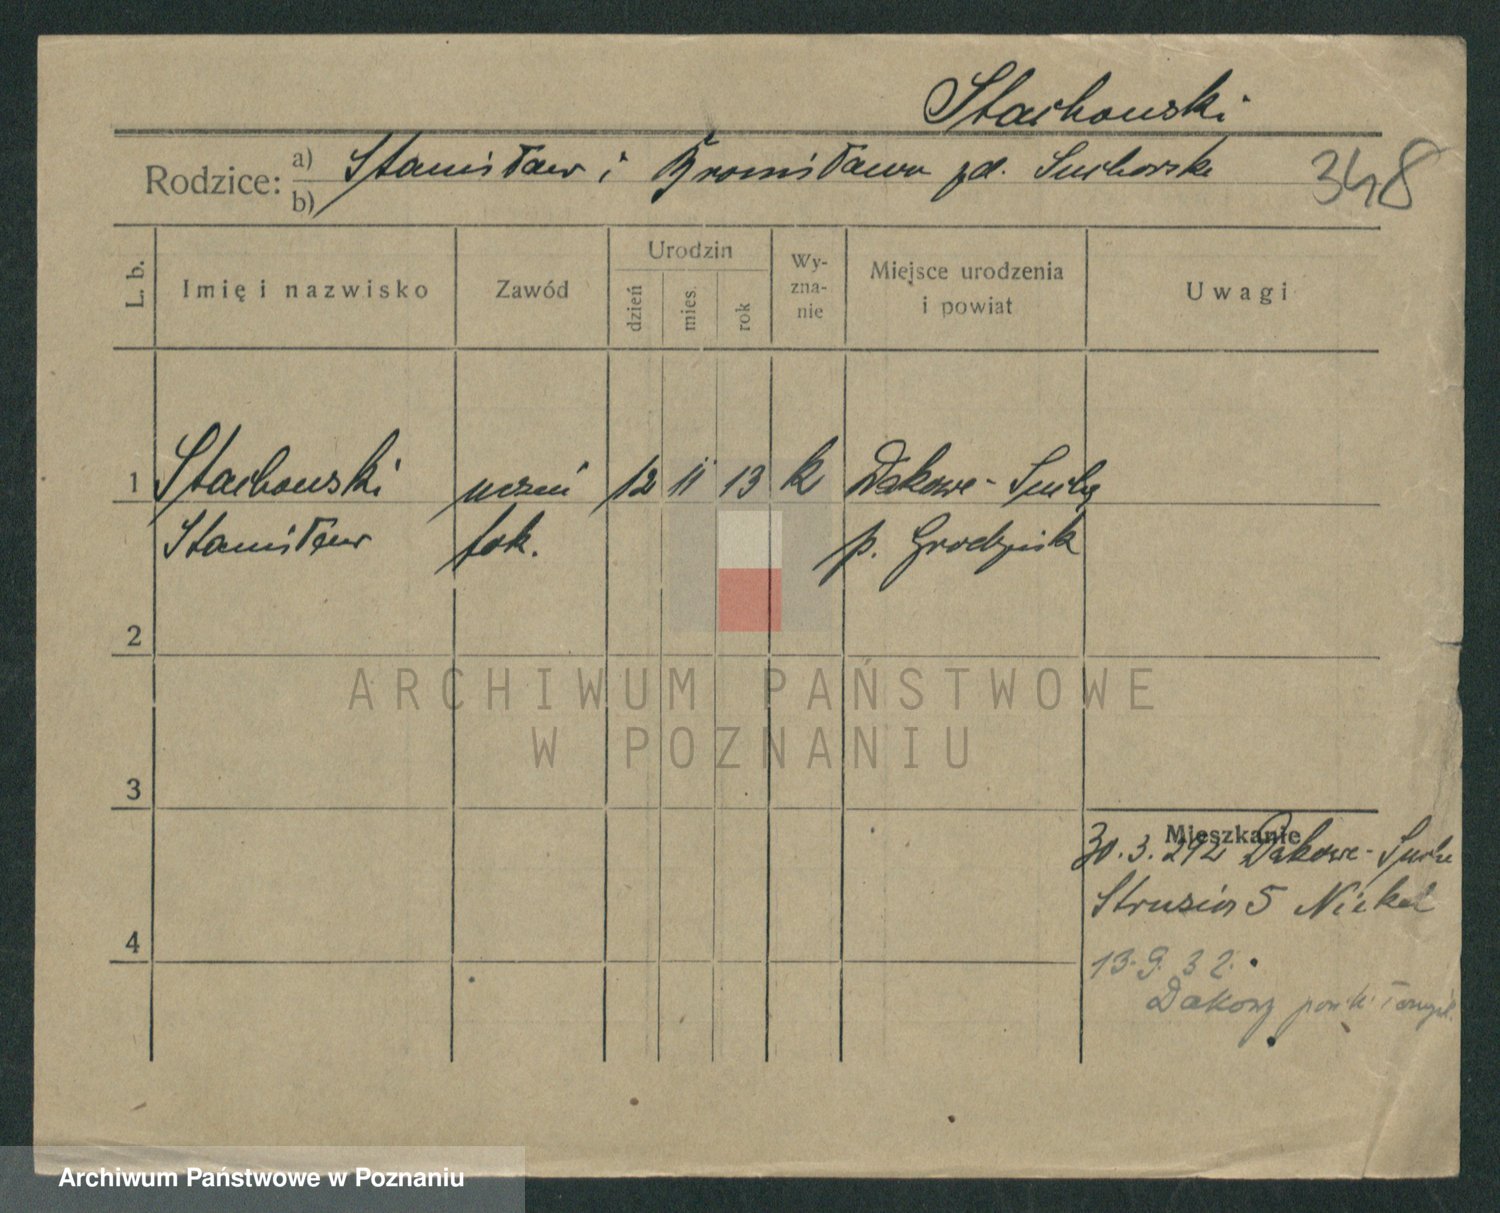 Stachowski
Rodzice: a) Stanisław i Bronisława zd. Suchorska
b)
348
L. b.
Imię i nazwisko
Zawód
Urodzin
dzień
mies.
rok
Wy-
zna-
nie
Miejsce urodzenia
i powiat
Uwagi
1 Stachowski uczeń 12 11 13 k Dakowe-Suche
Stanisław tok. p. Grodzisk
2
ARCHIWUM PAŃSTWOWE
W POZNANIU
3
Mieszkanie
30.3.292 Dakowe-Suche
Strusia 5 Nickel
4
13.9.32.
Dakowy
Archiwum Państwowe w Poznaniu